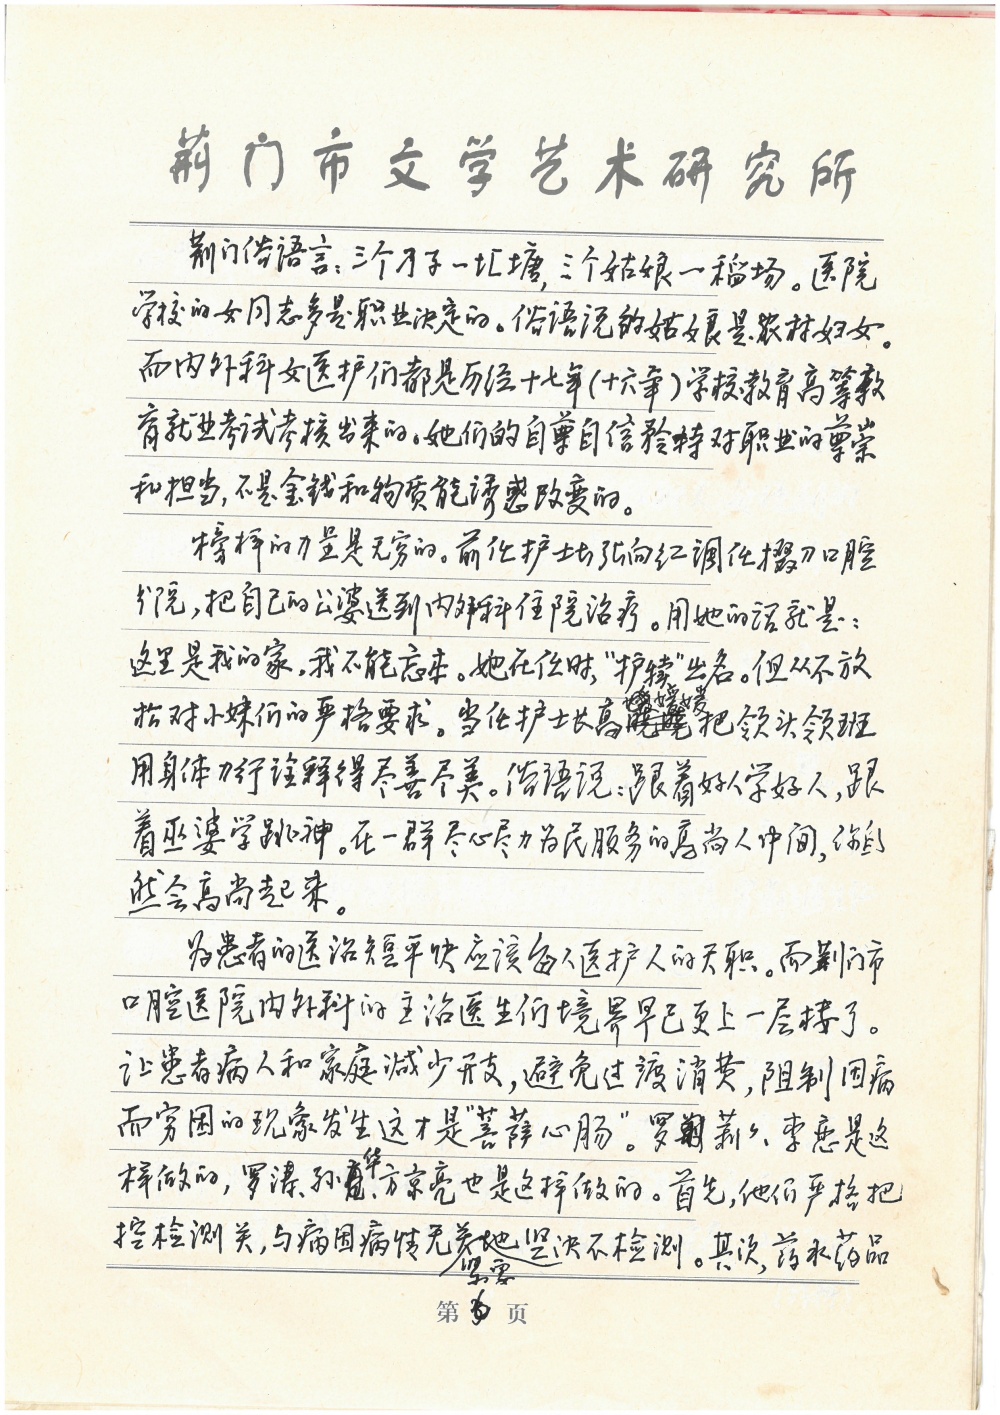 荆门市文学艺术研究所
荆门俗语言：三个才子一圵塘，三个姑娘一稻场。医院
学校的女同志多是职业决定的。俗语说的姑娘是农村妇女。
而内外科女医护们都是历经十七年(十六年)学校教育高等教
育就业考试考核出来的。她们的自尊自信矜持对职业的尊崇
和担当，不是金钱和物质能诱惑改变的。
榜样的力量是无穷的。前任护士长张向红调任掇刀口腔
分院，把自己的公婆送到内外科住院治疗。用她的话就是：
这里是我的家。我不能忘本。她在任时，“护犊”出名。但从不放
松对小妹们的严格要求。当任护士长高媛媛把领头领班
用身体力行诠释得尽善尽美。俗语说：跟着好人学好人，跟
着巫婆学跳神。在一群尽心尽力为民服务的高尚人中间，你自
然会高尚起来。
为患者的医治短平快应该每人医护人的天职。而荆门市
口腔医院内外科的主治医生们境界早已更上一层楼了。
让患者病人和家庭减少开支，避免过渡消费，阻制因病
而穷困的现象发生这才是“菩萨心肠”。罗莉、李恋是这
样做的，罗涛、孙华、方京亮也是这样做的。首先，他们严格把
控检测关，与病因病情无紧要地坚决不检测。其次，药水药品
第 页